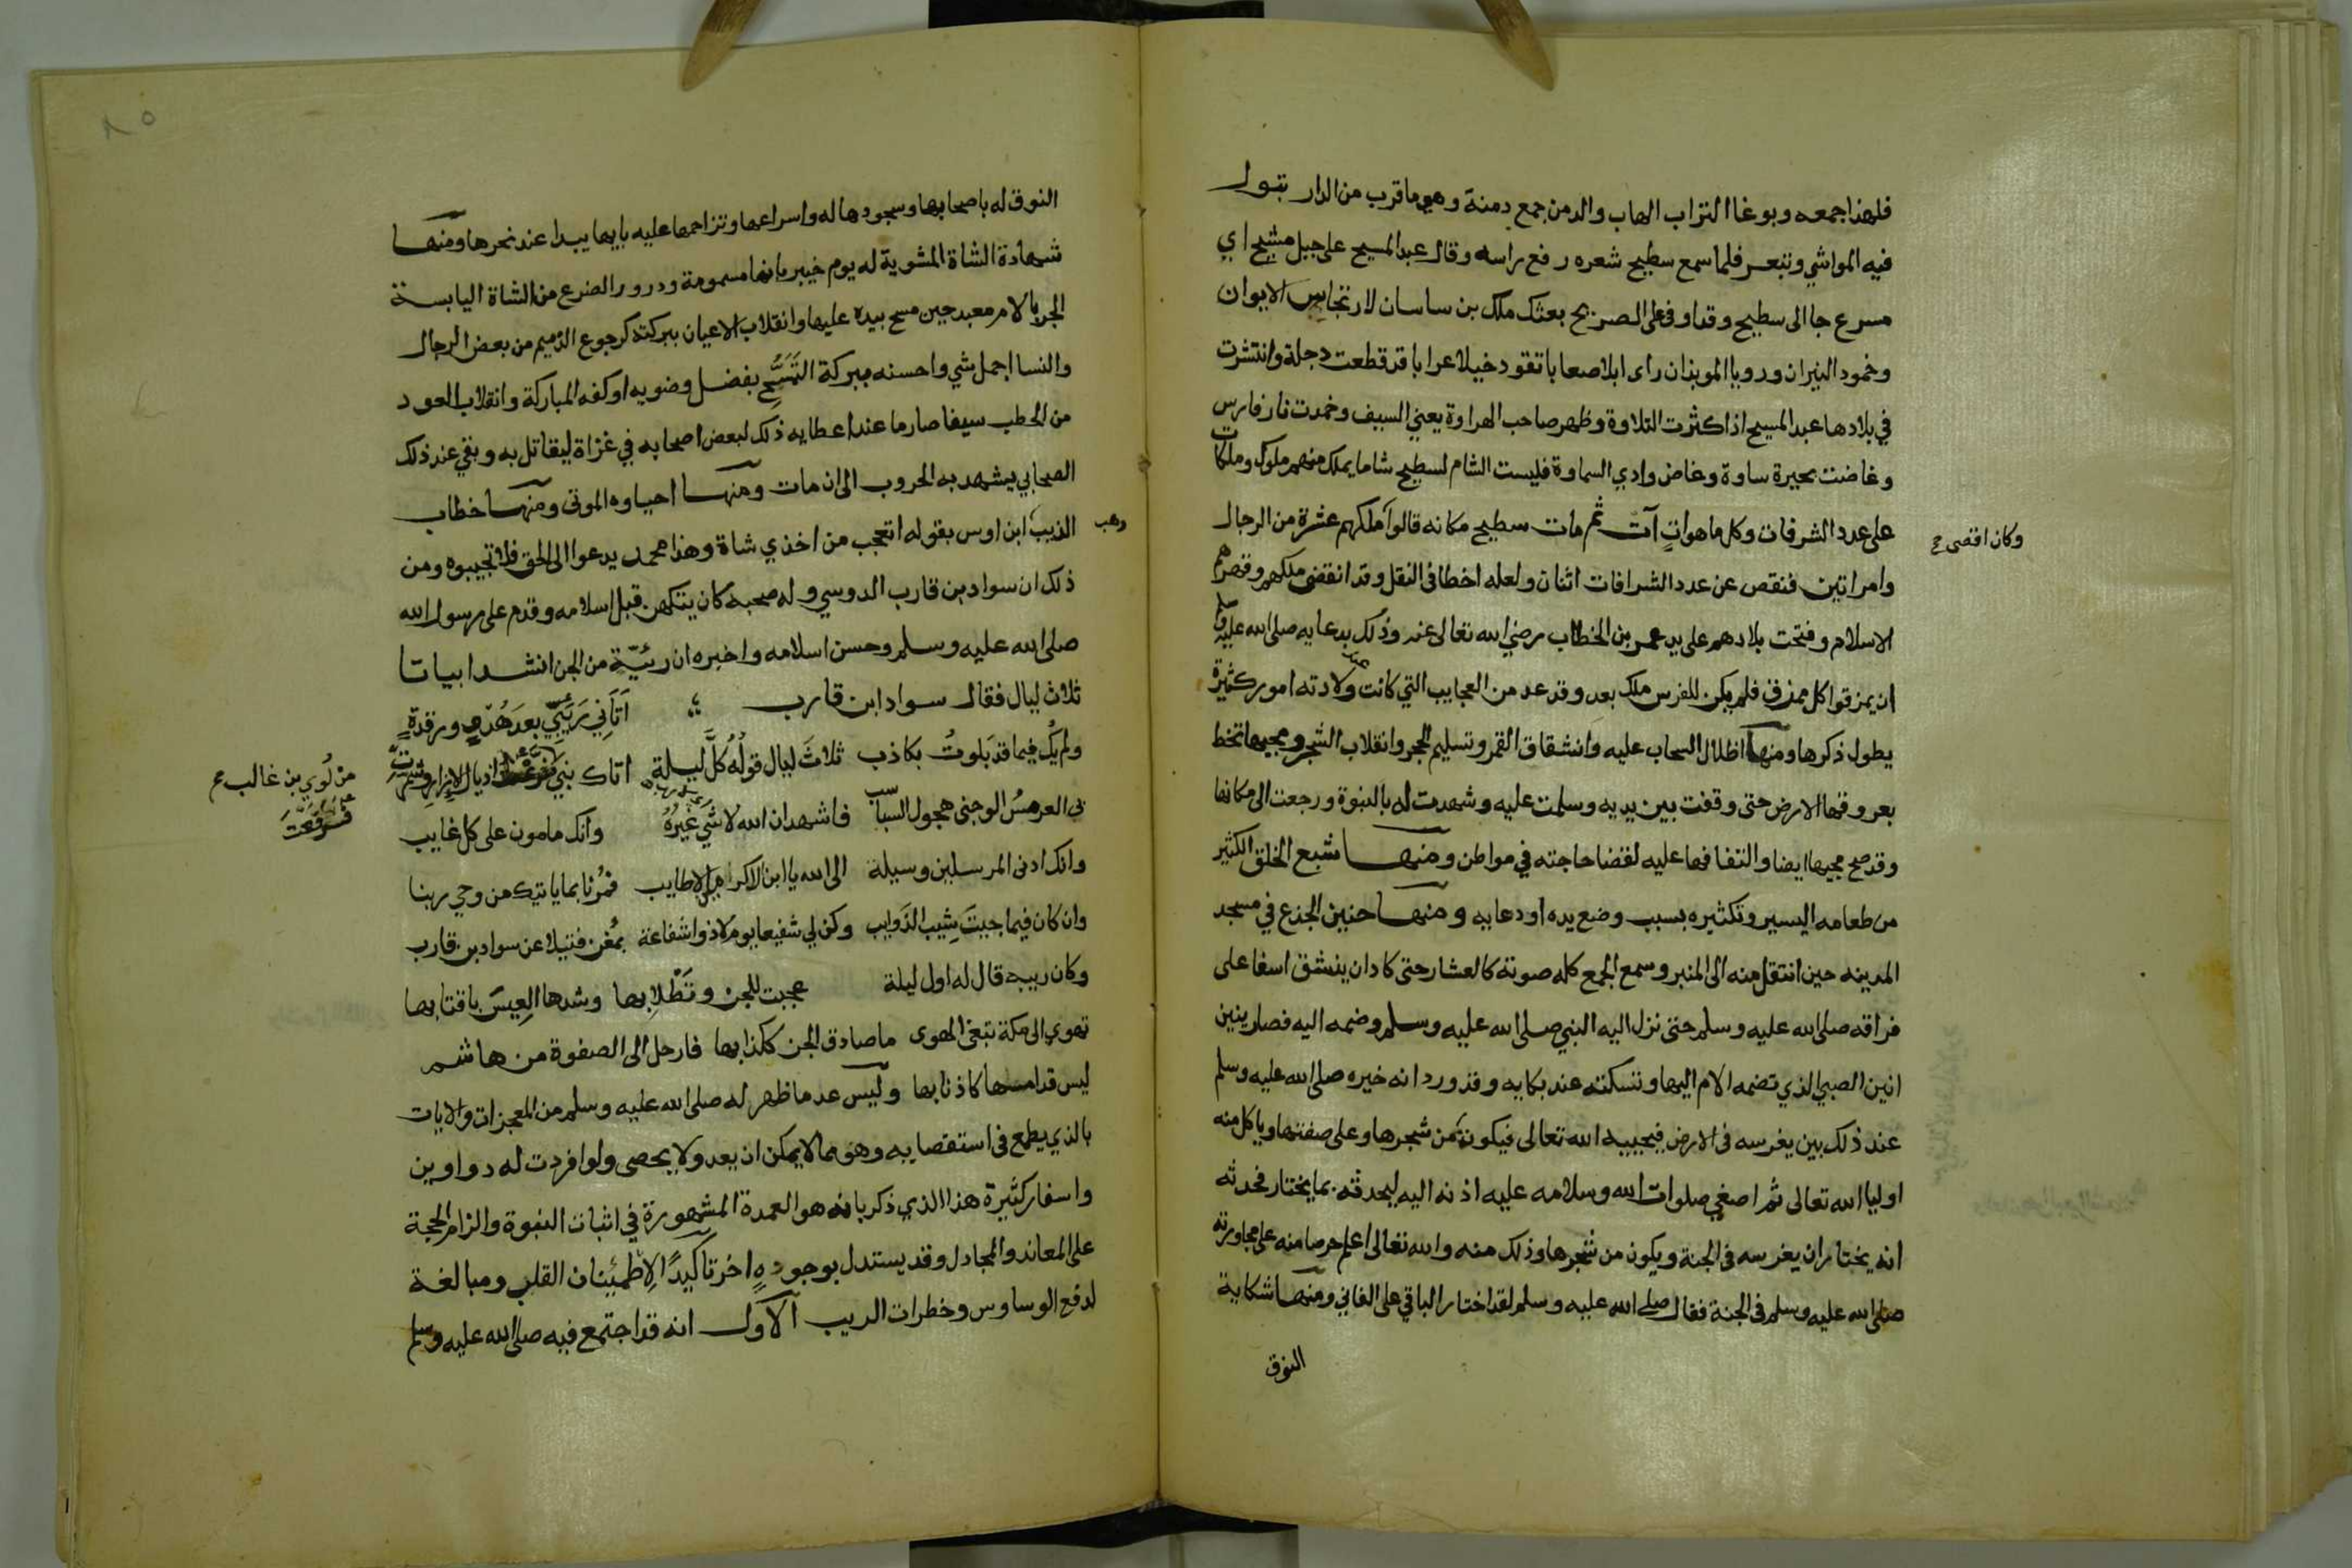 فلهذا جمعه وبوغا التراب الهاب والدمن جمع دمنة وهو ما قرب من الدار تبول
فيه المواشي وتبعر فلما سمع سطيح شعره رفع راسه وقال عبد المسيح على جبل مشيح اي
مسرع جا الى سطيح وقد اوفى على الضريح بعثك ملك بن ساسان لارتجاس الايوان
وخمود النيران ورويا الموبذان راى ابلا صعابا تقود خيلا عرابا قد قطعت دجلة وانتشرت
في بلادها عبد المسيح اذا كثرت التلاوة وظهر صاحب الهراوة يعني السيف وخمدت نار فارس
وغاضت بحيرة ساوة وغاض وادي السماوة فليست الشام لسطيح شاما يملك منهم ملوك وملكات
على عدد الشرفات وكل ما هو اتٍ آت ثم مات سطيح مكانه قالوا ملكهم عشرة من الرجال
وكان اقصى
وامراتين فنقص عن عدد الشرافات اثنان ولعله اخطا فى النقل وقد انقضى ملكهم وقهرهم
الاسلام وفتحت بلادهم على يد عمر بن الخطاب رضي الله تعالى عنه وذلك بدعايه صلى الله عليه
ان يمزقوا كل ممزق فلم يكن للفرس ملك بعد وقد عد من العجايب التي كانت ولادته امور كثيرة
يطول ذكرها ومنها اظلال السحاب عليه وانشقاق القمر وتسليم الحجر وانقلاب الشجر ومجيها تخط
بعروقها الارض حتى وقفت بين يديه وسلمت عليه وشهدت له بالنبوة ورجعت الى مكانها
وقد صح مجيها ايضا والتفافها عليه لقضا حاجته في مواطن ومنها شبع الخلق الكثير
من طعامه اليسير وتكثيره بسبب وضع يده او دعايه ومنها حنين الجذع في مسجد
المدينه حين انتقل منه الى المنبر وسمع الجمع كله صوته كالعشار حتى كاد ان ينشق اسفا على
فراقه صلى الله عليه وسلم حتى نزل اليه النبي صلى الله عليه وسلم وضمه اليه فصار ينين
انين الصبي الذي تضمه الام اليها وتسكته عند بكايه وقد ورد انه خيره صلى الله عليه وسلم
عند ذلك بين يغرسه فى الارض فيجيبه الله تعالى فيكون من شجرها وعلى صفتها وياكل منه
اوليا الله تعالى ثم اصغي صلوات الله وسلامه عليه اذنه اليه ليحدثه بما يختار فحدثه
انه يختار ان يغرسه فى الجنة ويكون من شجرها وذلك منه والله تعالى اعلم حرصا منه على مجاورته
صلى الله عليه وسلم فى الجنة فقال صلى الله عليه وسلم لقد اختار الباقي على الفاني ومنها شكاية
النوق
النوق له باصحابها وسجودها له واسراعها وتزاحمها عليه بايها يبدا عند نحرها ومنها
شهادة الشاة المشوية له يوم خيبر بانها مسمومة ودرور الضرع من الشاة اليابسة
الجربا لام معبد حين مسح بيده عليها وانقلاب الاعيان ببركته كرجوع الذميم من بعض الرجال
والنسا اجمل شي واحسنه ببركة التمسّح بفضل وضويه او كفه المباركة وانقلاب العود
من الحطب سيفا صارما عند اعطايه ذلك لبعض اصحابه في غزاة ليقاتل به وبقي عند ذلك
الصحابي يشهد به الحروب الى ان مات ومنها احياوه الموتى ومنها خطاب
الذيب ابن اوس بقوله اتعجب من اخذي شاة وهذا محمد يدعوا الى الحق فلا تجيبوه ومن
ذلك ان سواد بن قارب الدوسي وله صحبه كان يتكهن قبل اسلامه وقدم على رسول الله
صلى الله عليه وسلم وحسن اسلامه واخبره ان رئيّة من الجن انشد ابياتا
ثلاث ليال فقال سواد ابن قارب اَتَانِي رَئِيِّي بعدَ هُدْءٍ ورقدةٍ
ولم يكُ فيما قد بَلوتُ بكاذب ثلاثَ ليال قولُه كلَّ ليلة اتاك نبي
من لُوَي بن غالب
بي العرمسُ الوجنى هجول السباسب فاشهد ان الله لا شي غيرُهُ وانك مامون على كل غايب
وانك ادنى المرسلين وسيلة الى الله يا ابن الاكرمين الاطايب فمُرنا بما ياتيك من وحي ربنا
وان كان فيما جيتَ شِيب الذوايب وكن لي شفيعا يوم لا ذوا شفاعة بمُغن فتيلا عن سواد بن قارب
وكان رييه قال له اول ليلة عجبت للجن وتَطْلابها وشدها العِيسَ باقتابها
تهوي الى مكة تبغى الهوى ما صادق الجن ككذابها فارحل الى الصفوة من هاشم
ليس قدامها كاذنابها وليس عد ما ظهر له صلى الله عليه وسلم من المعجزات والايات
بالذي يطمع فى استقصايه وهو مما لا يمكن ان يعد ولا يحصى ولو افردت له دواوين
واسفار كثيرة هذا الذي ذكر بانه هو العمدة المشهورة في اثبات النبوة والزام الحجة
على المعاند والمجادل وقد يستدل بوجودهٍ اخر تاكيدًا لاطمئينان القلب ومبالغة
لدفع الوساوس وخطرات الريب الاول انه قد اجتمع فيه صلى الله عليه وسلم